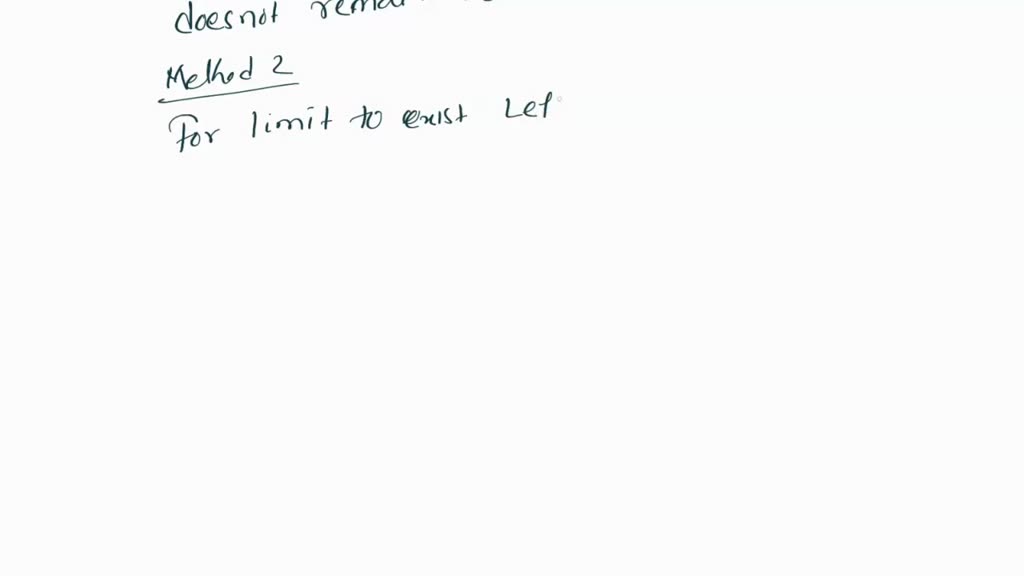 doesnot
Method 2
For limit to exist Lef